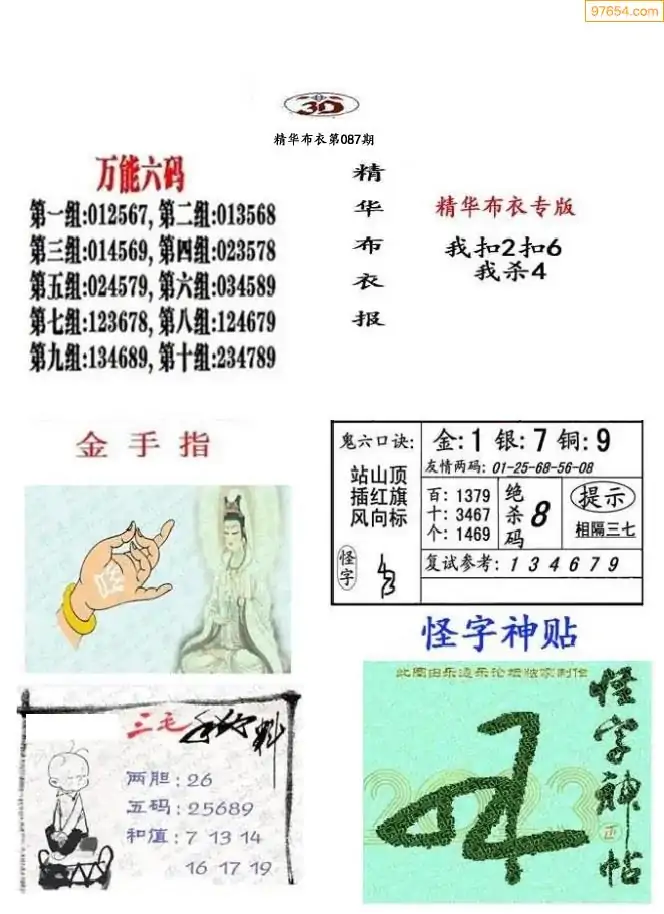 97654.com
3D
精华布衣第087期
万能六码
第一组:012567, 第二组:013568
第三组:014569, 第四组:023578
第五组:024579, 第六组:034589
第七组:123678, 第八组:124679
第九组:134689, 第十组:234789
精华布衣报
精华布衣专版
我扣2扣6
我杀4
金手指
鬼六口诀:
站山顶
插红旗
风向标
怪字
金:1 银:7 铜:9
友情两码: 01-25-68-56-08
百: 1379
十: 3467
个: 1469
绝杀码
8
提示
相隔三七
复试参考: 1 3 4 6 7 9
怪字神贴
此图由乐透乐论坛独家制作
怪字神帖
2023
三毛
料
两胆: 26
五码: 25689
和值: 7 13 14
16 17 19